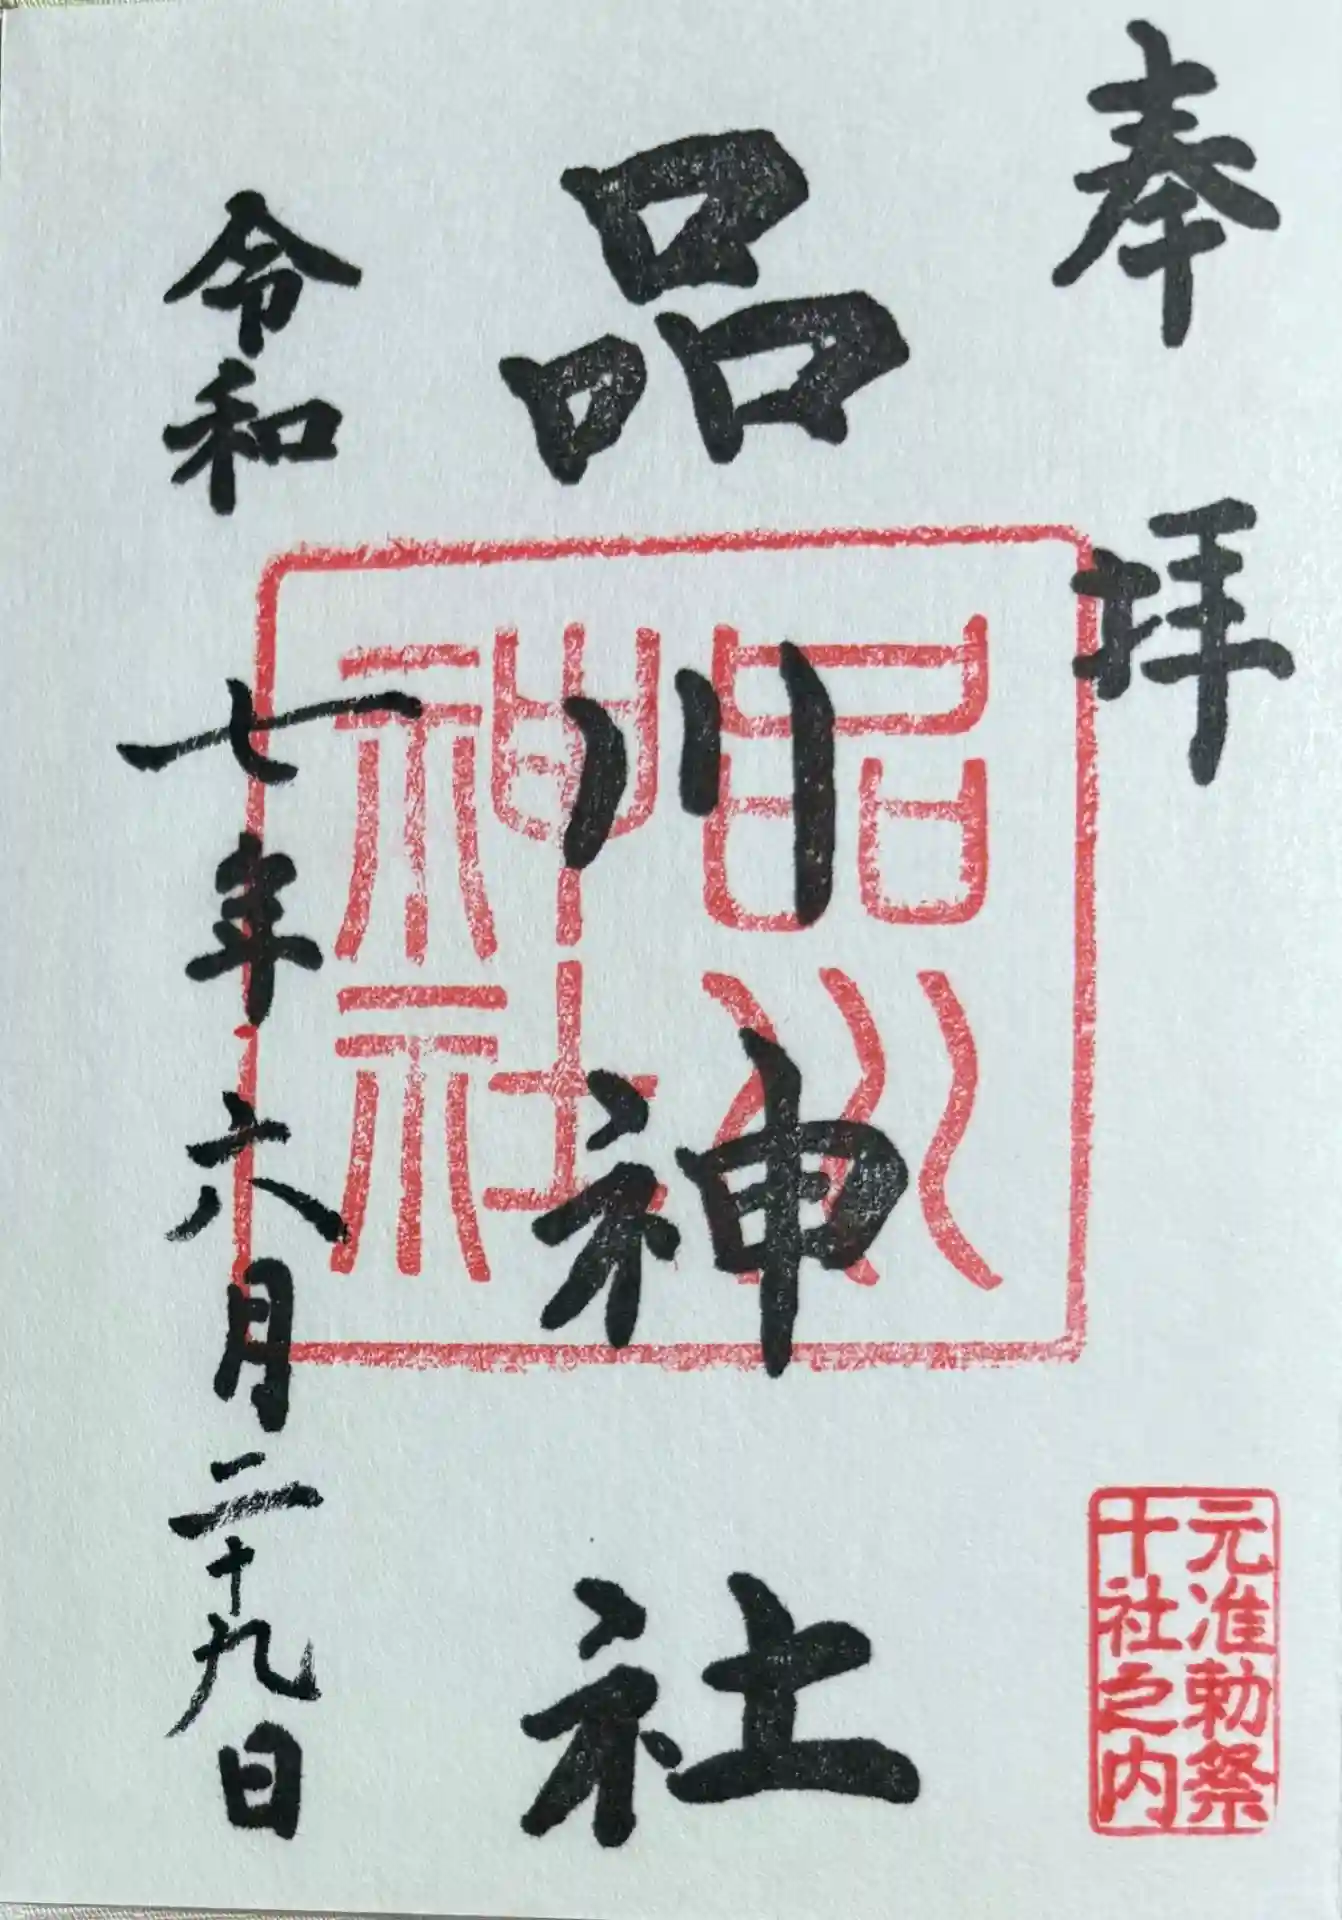 奉拝
元准勅祭
十社之内
品川神社
品川
神社
令和七年六月二十九日